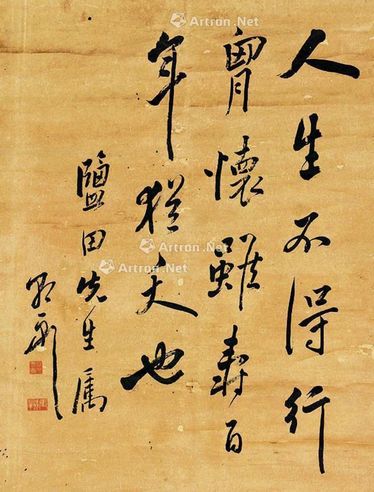 人生不得行
胷懷雖壽百
年猶夭也
鹽田先生属
Artron.Net
Artron.Net
Artron.Net
Artron.Net